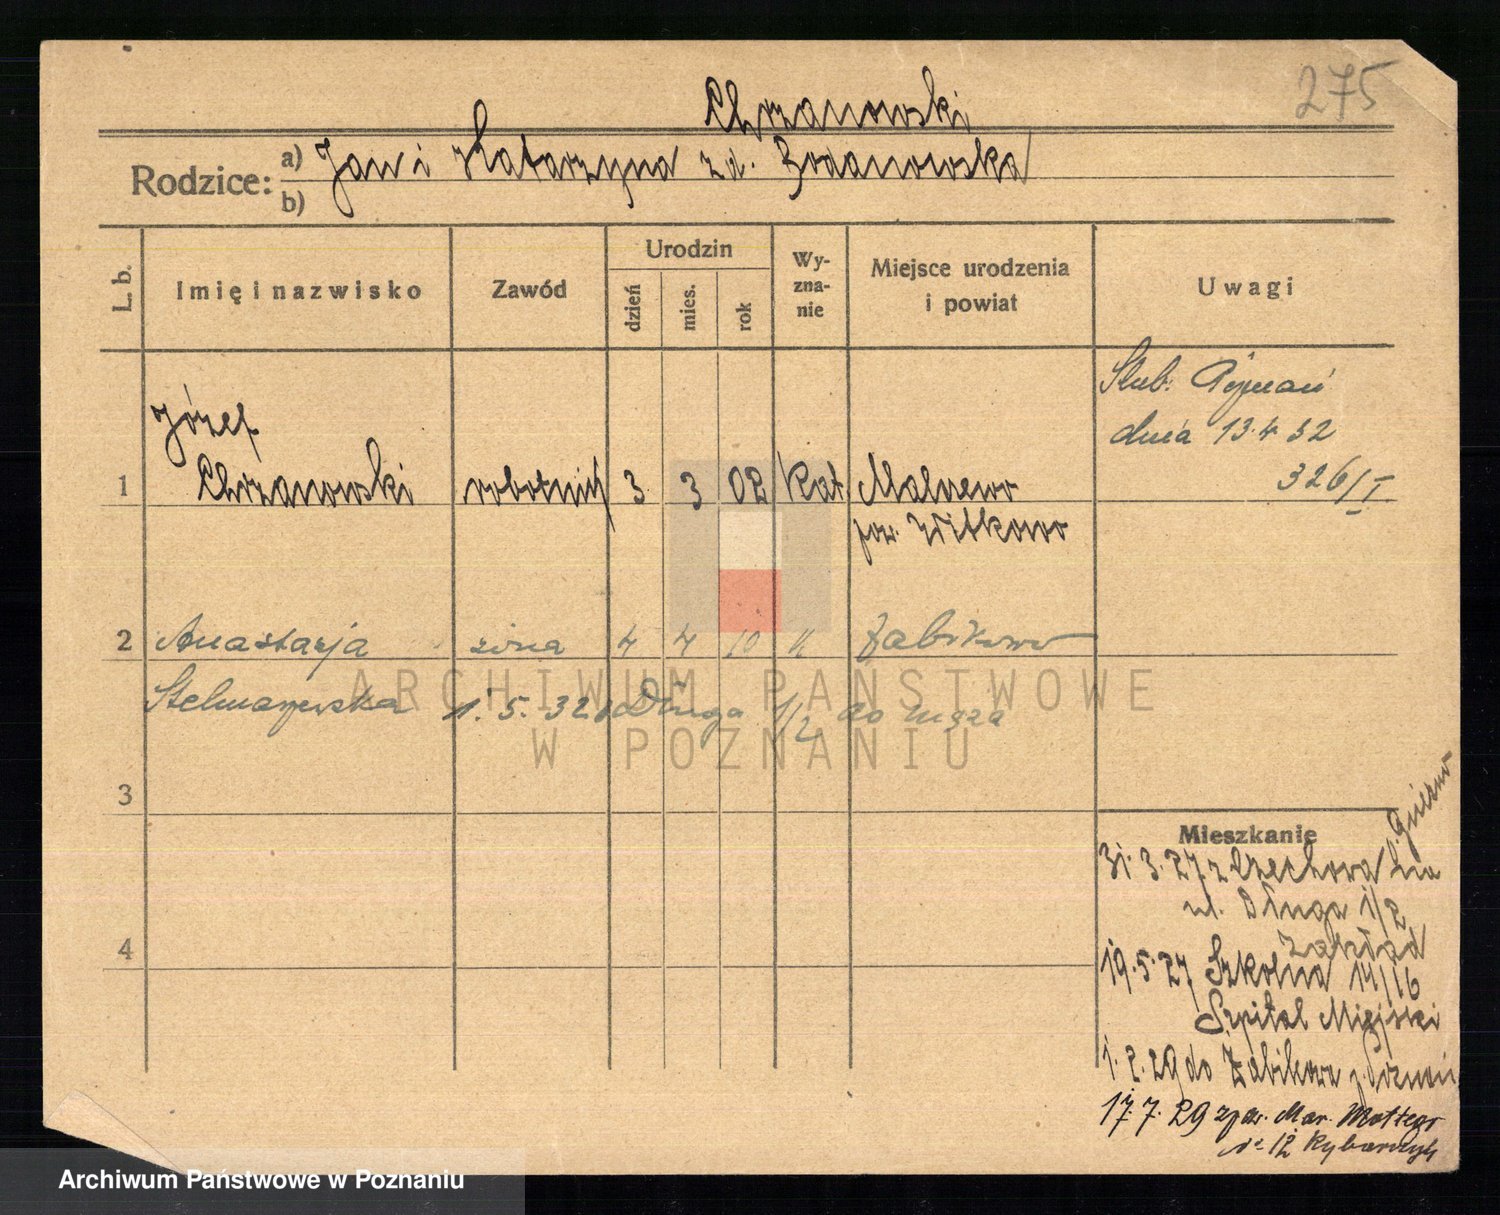 275
Chrzanowski
Rodzice: a) Jan i Katarzyna zd. Bogdanowska
b)
L. b. Imię i nazwisko Zawód Urodzin dzień mies. rok Wyznanie Miejsce urodzenia i powiat Uwagi
Ślub. Poznań
dnia 13.4 32
326/I
Józef
1 Chrzanowski robotnik 3 3 02 kat
pow. Witkowo
2 Anastazja żona 4 4 10 " Żabikowo
Stelmaszewska 1.5.32 Długa 1/2 do męża
ARCHIWUM PAŃSTWOWE
W POZNANIU
3
Mieszkanie
31.3.27 z Czechowa
ul. Długa 1/2
Zakład
19.5.27 Szkolna 14/16
Szpital Miejski
1.2.29 do Żabikowa p. Poznań
17.7.29 Mar. Mottego
12 Rybarczyk
4
Archiwum Państwowe w Poznaniu